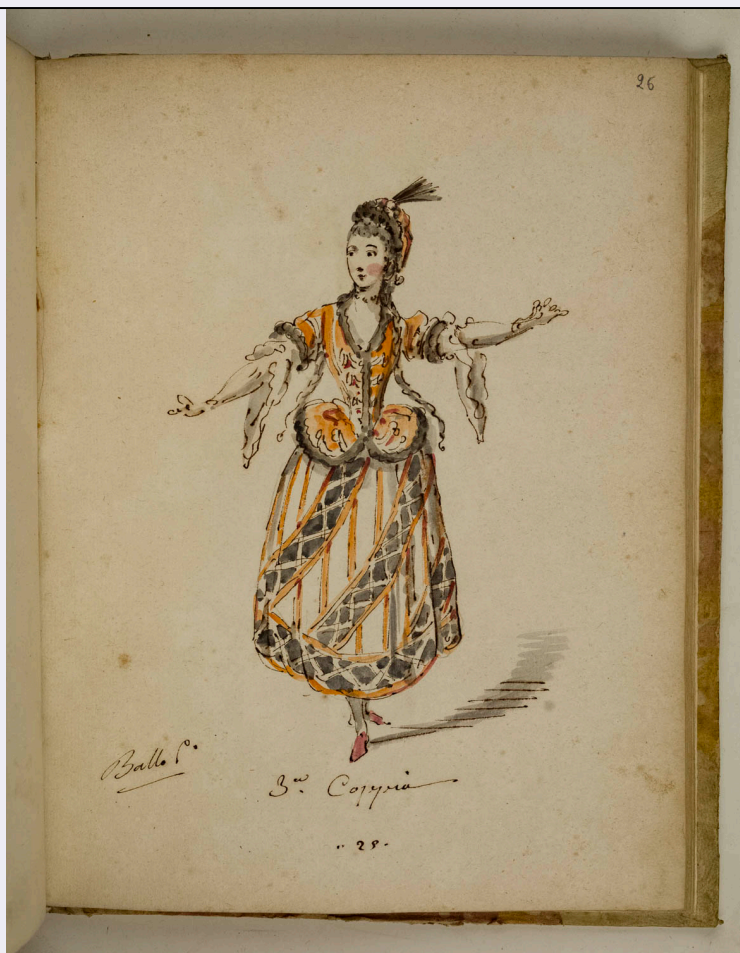 26
Ballo P.º
3.ª Coppia
.. 25.